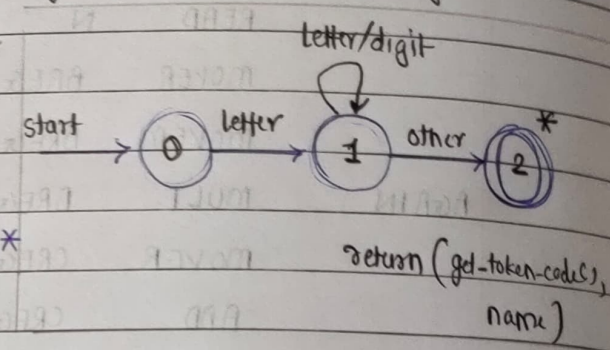 Letter/digit
start
letter
other
*
0
1
2
*
return (get-token-code(),
name)